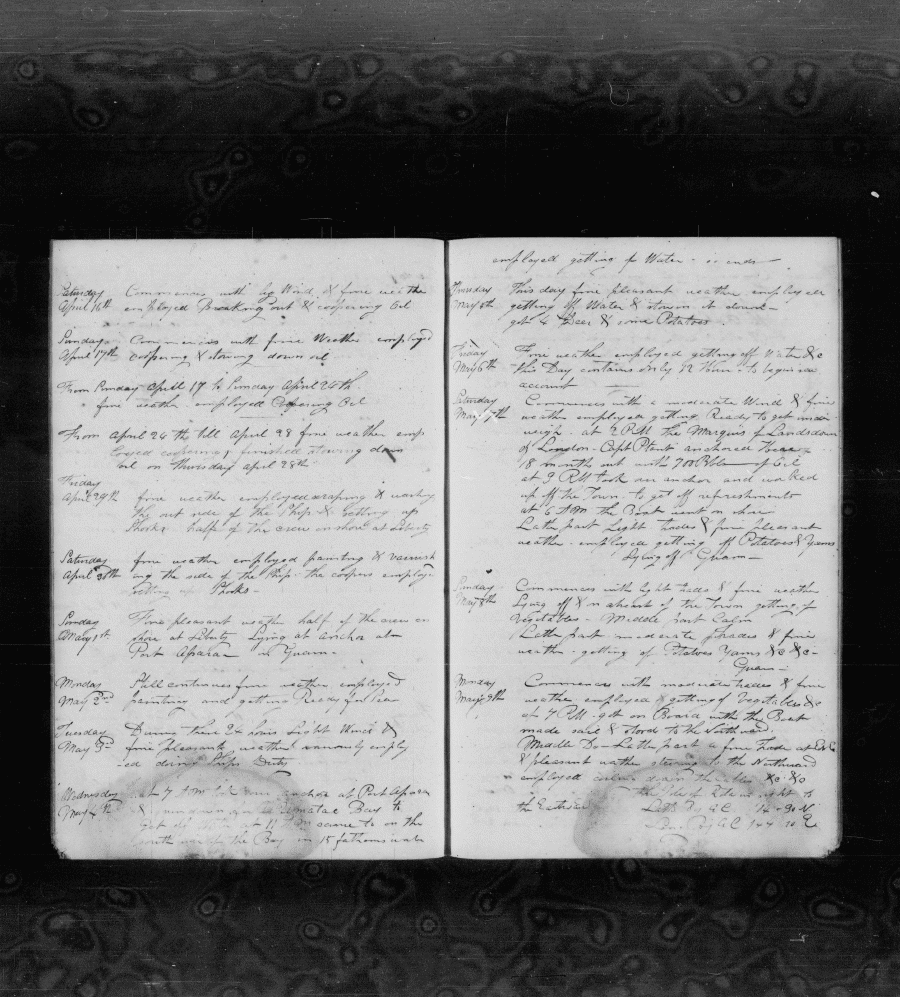 Saturday April 16th Commences with Wind, & fine weather
employed Breaking out & coopering Oil
Sunday April 17th Commences with fine Weather employed
coopering & stowing down oil
From Sunday April 17 to Sunday April 24th
fine weather employed Coopering Oil
From April 24th till April 28 fine weather emp
loyed coopering, finished stowing down
oil on Thursday April 28th
Friday
April 29th fine weather employed scraping & washing
the out side of the Ship & setting up
Shooks half of the crew on shore at liberty
Saturday fine weather employed painting & varnish
April 30th ing the side of the Ship. the coopers employ
setting up Shooks -
Sunday Fine pleasant weather half of the crew on
May 1st shore at Liberty Lying at Anchor
Port Aparra Guam -
Monday Still continues fine weather employed
May 2nd painting and getting Ready for Sea
Tuesday During these 24 hours Light Winds &
May 3rd fine pleasant weather variously employ
ed doing Ships Duty
Wednesday at 7 AM anchor at Port Aparra
May 4th & Bay to
get off at 11 came to on the
south of the Bay in 15 fathoms water
employed getting of Water - so ends
Thursday This day fine pleasant weather employed
May 5th getting off Water & stowing it down -
got 4 Deer & some Potatoes.
Friday Fine weather employed getting off Water &c
May 6th this Day contains only 12 Hours to begin sea
account
Saturday Commences with a moderate Wind & fine
May 7th weather employed getting Ready to get under
weigh - at 2 PM the Marquis of Landsdown
of London - Capt anchored Here
18 month out with 700 Bbls of Oil
at 3 PM took our anchor and worked
up off the Town to get off refreshments
at 6 AM the Boat went on shore
Latter part Light Trades & fine pleasant
weather - employed getting off Potatoes & Yams
Lying off Guam -
Sunday Commences with light trades & fine weather
May 8th Lying off & on abreast of the Town getting of
Vegetables - Middle part Calm
Latter part moderate trades & fine
weather - getting of Potatoes Yams &c &c -
Guam -
Monday Commences with moderate trades & fine
May 9th weather employed getting of Vegetables &c
at 4 PM got on Board with the Boat
made sail & stood to the Northward.
Middle Do - Latter part a fine Trade at
& pleasant weather steering to the Northward
employed down the &c &c
the Isle of to
the Eastward Latt By 14-90 N
Lon By 144-10 E